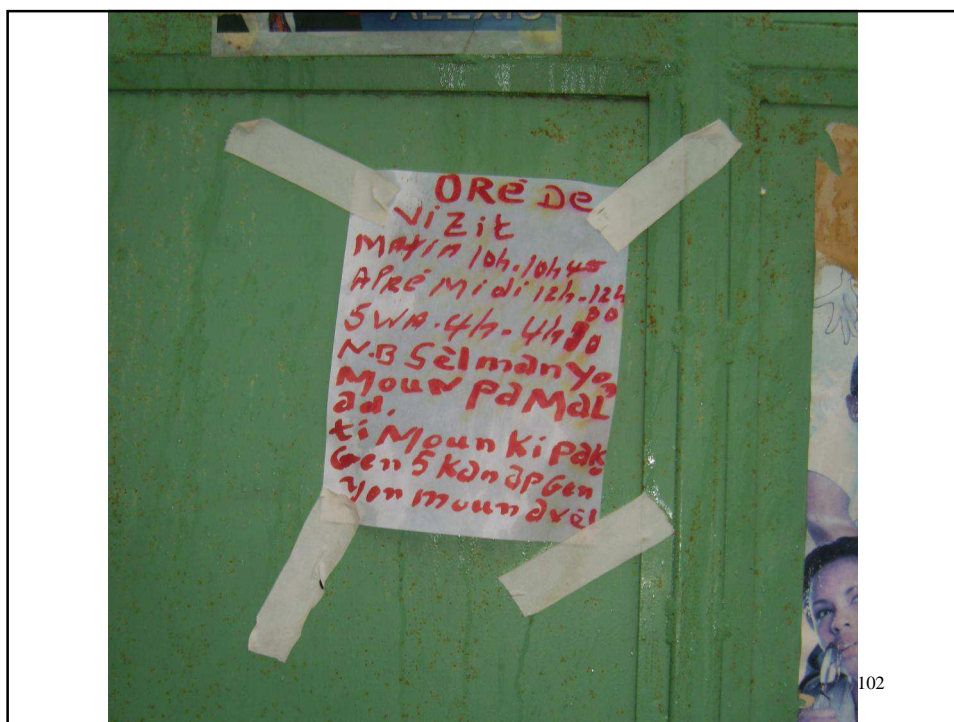 ALEXIS
ORé De
Vizit
MATIN 10h.10h45
APRé Midi 12h.12h
30
SWA.4h-4h30
N.B Sèlman yon
Moun PaMaL
ad.
ti Moun Ki Pako
Gen 5 Kan ap Gen
yon moun avèl
102